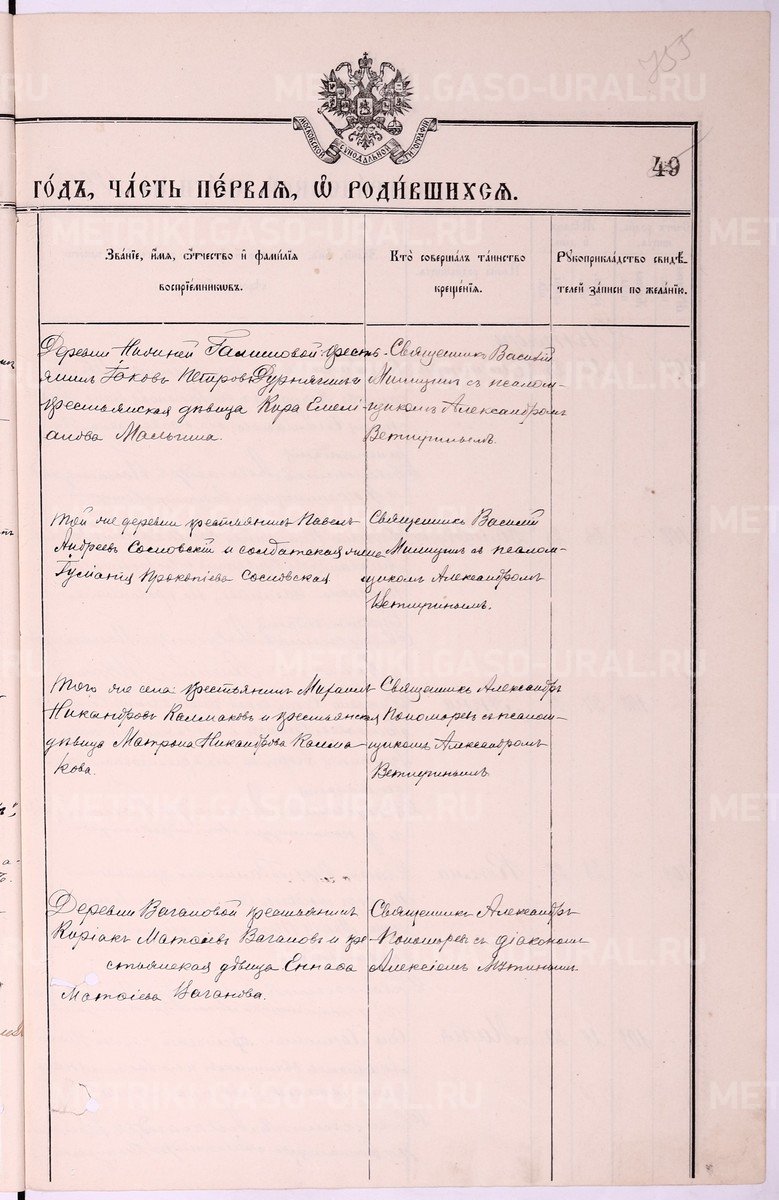 755
МОСКОВСКОЙ СѴНОДАЛЬНОЙ ТИПОГРАФІИ
49
ГОДЪ, ЧАСТЬ ПЕРВАЯ, Ѡ РОДИВШИХСЯ.
Званіе, имя, отчество и фамилія
воспріемниковъ.
Кто совершалъ таинство
крещенія.
Рукоприкладство свидѣ-
телей записи по желанію.
Деревни Нижней Галишовой крестья-
нинъ Іаковъ Петровъ и
крестьянская дѣвица Кира Емелі-
анова Малыгина.
Священникъ Василій
съ псалом-
щикомъ Александромъ
Ветлугинымъ.
Той же деревни крестьянинъ Павелъ
Андреевъ Сосновскій и солдатская жена
Прокопіева Сосновская
Священникъ Василій
съ псалом-
щикомъ Александромъ
Ветлугинымъ.
Того же села крестьянинъ Михаилъ
Никандровъ Калмаковъ и крестьянская
дѣвица Матрона Никандрова Калма-
кова.
Священникъ Александръ
Пономаревъ съ псалом-
щикомъ Александромъ
Ветлугинымъ
Деревни Вагановой крестьянинъ
Киріакъ Матѳіевъ Вагановъ и кре-
стьянская дѣвица
Матѳіева Ваганова.
Священникъ Александръ
Пономаревъ съ діакономъ
Алексіемъ
METRIKI.GASO-URAL.RU